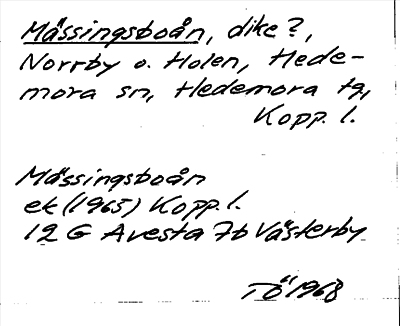 Mässingsboån, dike?,
Norrby o. Holen, Hede-
mora sn, Hedemora tg,
Kopp. l.
Mässingsboån
ek (1965) Kopp. l.
12 G Avesta 7b Västerby
TÖ 1968